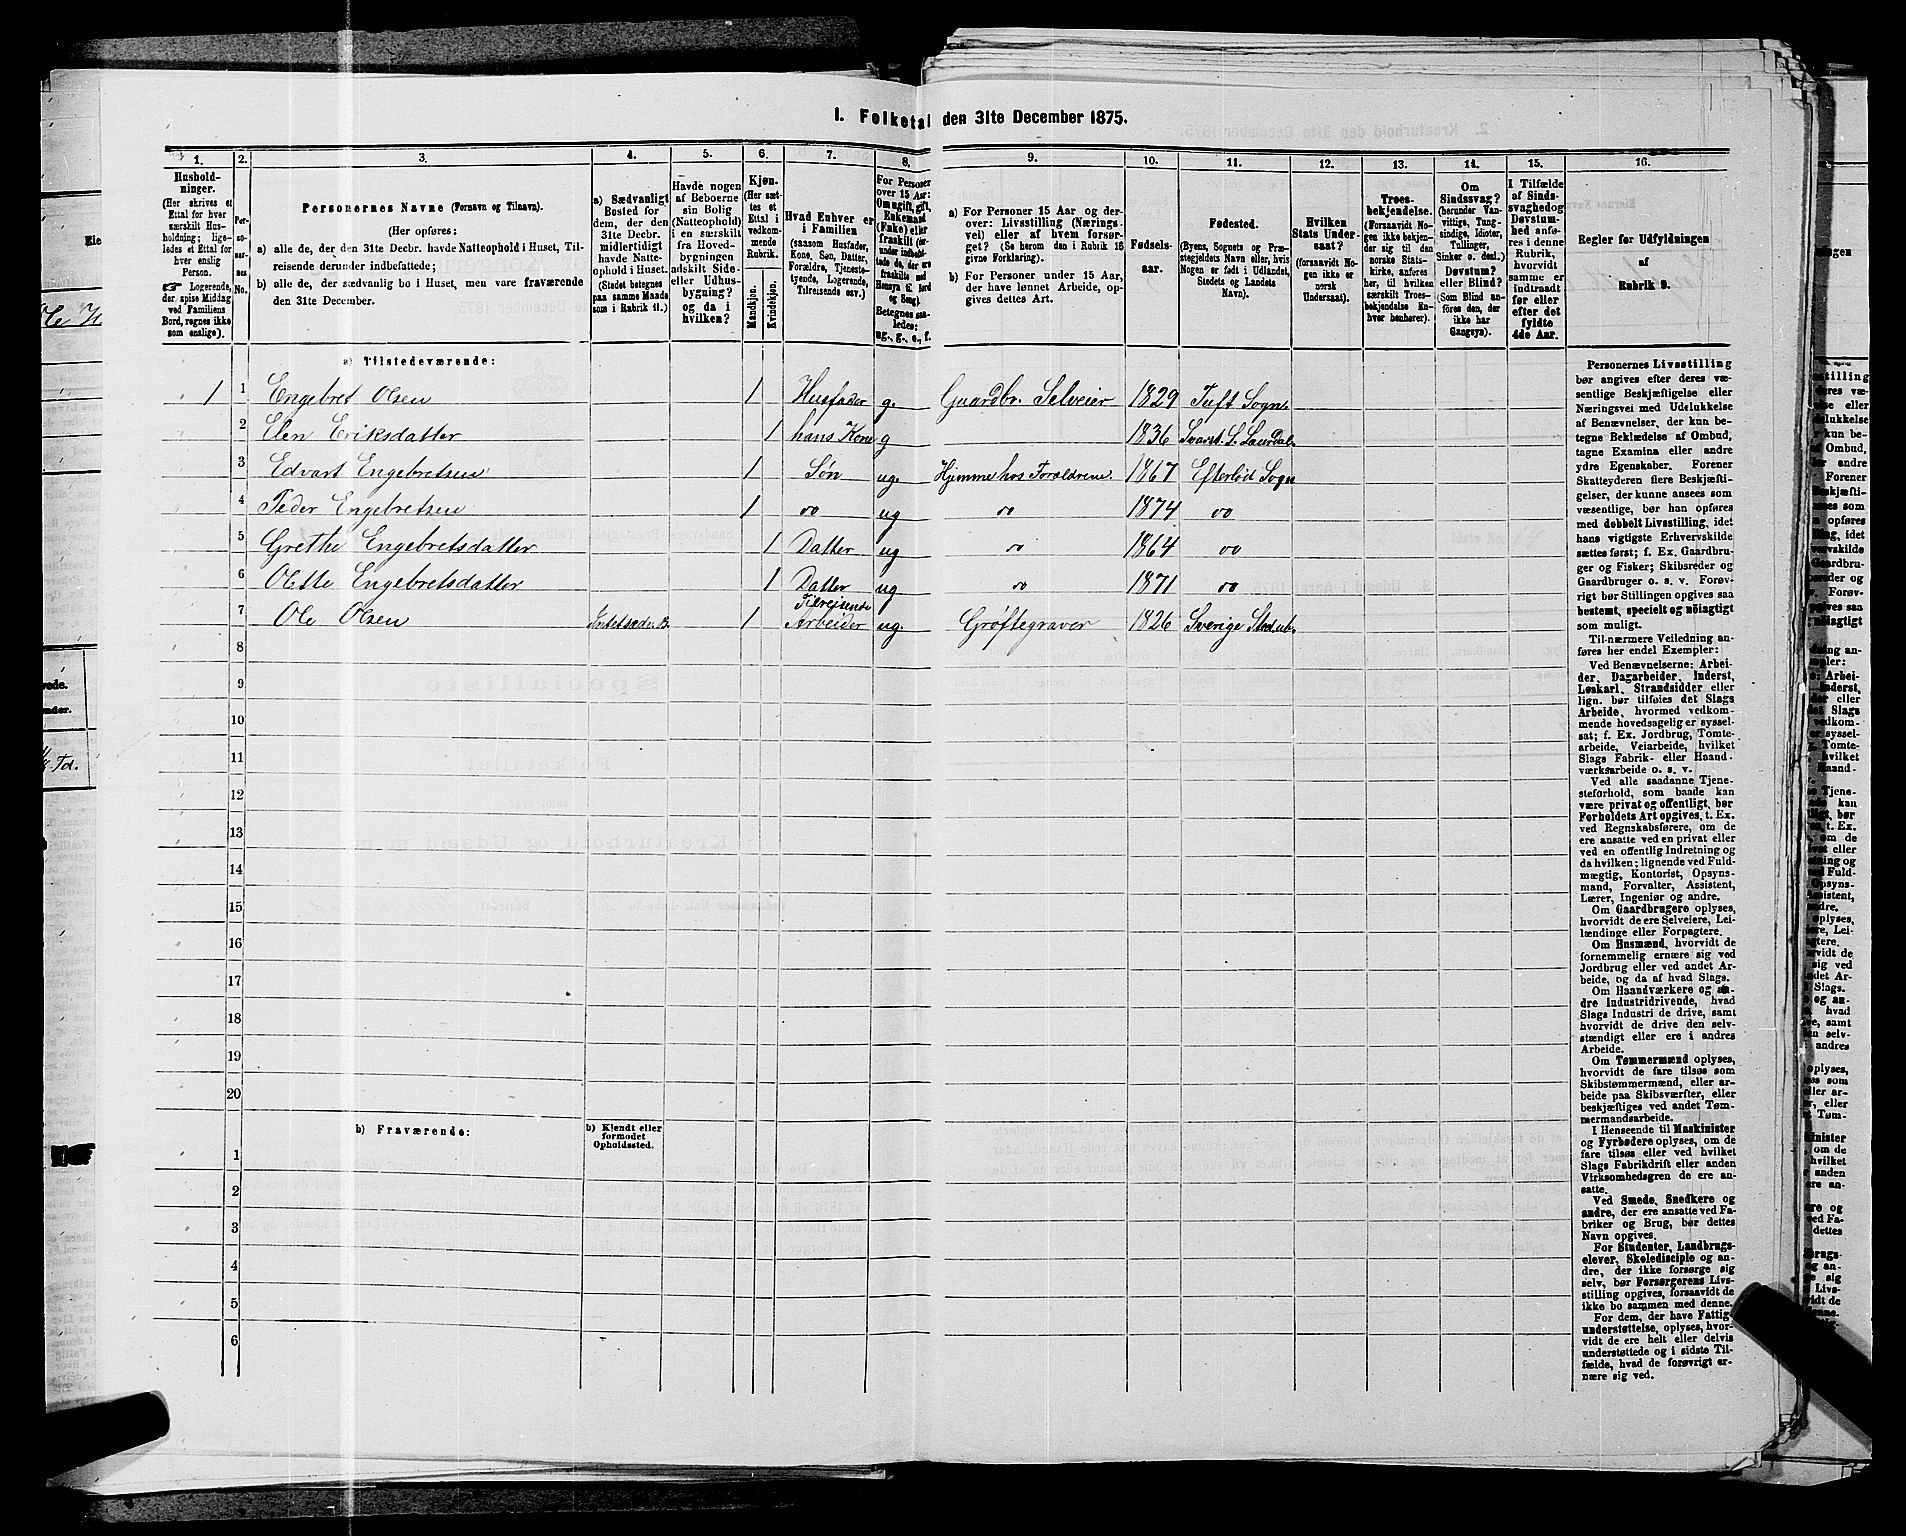 I. Folketal den 31te December 1875.
1. 2. 3. 4. 5. 6. 7. 8. 9. 10. 11. 12. 13. 14. 15. 16.
Husholdninger.
(Her skrives et
Ettal for hver
særskilt Husholdning; ligeledes
et Ettal for
hver enslig
Person.
Logerende,
der spise Middag
ved Familiens
Bord, regnes ikke
som enslige).
Personernes No.
Personernes Navne (Fornavn og Tilnavn).
(Her opføres:
a) alle de, der den 31te Decbr. havde Natteophold i Huset, Tilreisende
derunder indbefattede;
b) alle de, der sædvanlig bo i Huset, men vare fraværende
den 31te December.
a) Sædvanligt
Bosted for
dem, der den
31te Decbr.
midlertidigt
havde Natteophold
i Huset.
(Stedet betegnes
paa samme Maade
som i Rubrik 11.)
Havde nogen
af Beboerne
sin Bolig
(Natteophold)
i en særskilt
fra Hovedbygningen
adskilt Side- eller
Udhusbygning?
og da i
hvilken?
Kjøn.
(Her sættes
et
Ettal i
vedkommende
Rubrik.
Mandkjøn.
Kvindekjøn.
Hvad Enhver er
i Familien
(saasom Husfader,
Kone, Søn, Datter,
Forældre, Tjenestetyende,
Logerende,
Tilreisende osv.)
For Personer
over 15 Aar:
Om ugift, gift,
Enkemand
(Enke) eller
fraskilt
Betegnes saaledes:
ug., g., e., f.
a) For Personer 15 Aar og derover:
Livsstilling (Næringsvei)
eller af hvem forsørget?
(Se herom den i Rubrik 16
givne Forklaring).
b) For Personer under 15 Aar,
der have lønnet Arbeide, opgives
dettes Art.
Fødselsaar.
Fødested.
(Byens, Sognets og Præstegjeldets
Navn eller, hvis
Nogen er født i Udlandet,
Stedets og Landets
Navn).
Hvilken
Stats Undersaat?
(forsaavidt Nogen
ikke er
norsk
Undersaat).
Troesbekjendelse.
(Forsaavidt Nogen
ikke bekjender
sig til
den norske Statskirke,
anføres
her, til hvilken
særskilt Troesbekjendelse
Enhver
henhører).
Om
Sindssvag?
(herunder Vanvittige,
Tungsindige,
Idioter,
Tullinger,
Sinker o. desl.)
Døvstum?
eller Blind?
(Som Blind anføres
den, der
ikke har
Gangsyn).
I Tilfælde
af Sindssvaghed
og
Døvstumhed
anføres
i denne
Rubrik,
hvorvidt
samme er
indtraadt
før eller
efter det
fyldte
4de Aar.
Regler for Udfyldningen
af
Rubrik 9.
a) Tilstedeværende:
1 1 Engebret Olsen 1 Husfader g. Gaardbr. Selveier 1829 Tuft Sogn.
2 Elen Eriksdatter 1 hans Kone g 1836 Svarst. S. Laurdal.
3 Edvart Engebretsen 1 Søn ug. Hjemme hos Forældrene. 1867 Efterløt Sogn
4 Peder Engebretsen 1 do ug do 1874 do
5 Grethe Engebretsdatter 1 Datter ug do 1864 do
6 Olette Engebretsdatter 1 Datter ug do 1871 do
7 Ole Olsen 1 Tilreisende Arbeider ug. Grøftegraver 1826 Sverige
8
9
10
11
12
13
14
15
16
17
18
19
20
b) Fraværende:
b) Kjendt eller
formodet
Opholdssted.
1
2
3
4
5
6
Personernes Livsstilling
bør angives efter deres væsentlige
Beskjæftigelse eller
Næringsvei med Udelukkelse
af Benævnelser, der kun betegne
Beklædelse af Ombud,
tagne Examina eller andre
ydre Egenskaber. Forener
Skatteyderen flere Beskjæftigelser,
der kunne ansees som
væsentlige, bør han opføres
med dobbelt Livsstilling, idet
hans vigtigste Erhvervskilde
sættes først; f. Ex. Gaardbruger
og Fisker; Skibsreder og
Gaardbruger o. s. v. Forøvrigt
bør Stillingen opgives saa
bestemt, specielt og nøiagtigt
som muligt.
Til nærmere Veiledning anføres
her endel Exempler:
Ved Benævnelserne: Arbeider,
Dagarbeider, Inderst,
Løskarl, Strandsidder eller
lign. bør tilføies det Slags
Arbeide, hvormed vedkommende
hovedsagelig er sysselsat;
f. Ex. Jordbrug, Tomtearbeide,
Veiarbeide, hvilket
Slags Fabrik- eller Haandværksarbeide
o. s. v.
Ved alle saadanne Tjenesteforhold,
som baade kan
være privat og offentligt, bør
Forholdets Art opgives, t. Ex.
ved Regnskabsførere, om de
ere ansatte ved en privat eller
ved en offentlig Indretning og
da hvilken; lignende ved Fuldmægtig,
Kontorist, Opsynsmand,
Forvalter, Assistent,
Lærer, Ingeniør og andre.
Om Gaardbrugere oplyses,
hvorvidt de ere Selveiere, Leilændinge
eller Forpagtere.
Om Husmænd, hvorvidt de
fornemmelig ernære sig ved
Jordbrug eller ved andet Arbeide,
og da af hvad Slags.
Om Haandværkere og andre
Industridrivende, hvad
Slags Industri de drive, samt
hvorvidt de drive den selvstændigt
eller ere i andres
Arbeide.
Om Tømmermænd oplyses,
hvorvidt de fare tilsøs som
Skibstømmermænd, eller arbeide
paa Skibsværfter, eller
beskjæftiges ved andet Tømmermandsarbeide.
I Henseende til Maskinister
og Fyrbødere oplyses, om de
fare tilsøs eller ved hvilket
Slags Fabrikdrift eller anden
Virksomhedsgren de ere ansatte.
Ved Smede, Snedkere og
andre, der ere ansatte ved Fabriker
og Brug, bør dettes
Navn opgives.
For Studenter, Landbrugselever,
Skoledisciple og andre,
der ikke forsørge sig
selv, bør Forsørgerens Livsstilling
opgives, forsaavidt de
ikke bo sammen med denne.
For dem, der have Fattigunderstøttelse,
oplyses, hvorvidt
de ere helt eller delvis
understøttede og i sidste Tilfælde,
hvad de forøvrigt ernære
sig ved.